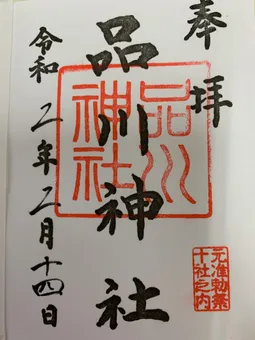 奉拝
品川神社
品川神社
元准勅祭
十社之内
令和二年二月十四日